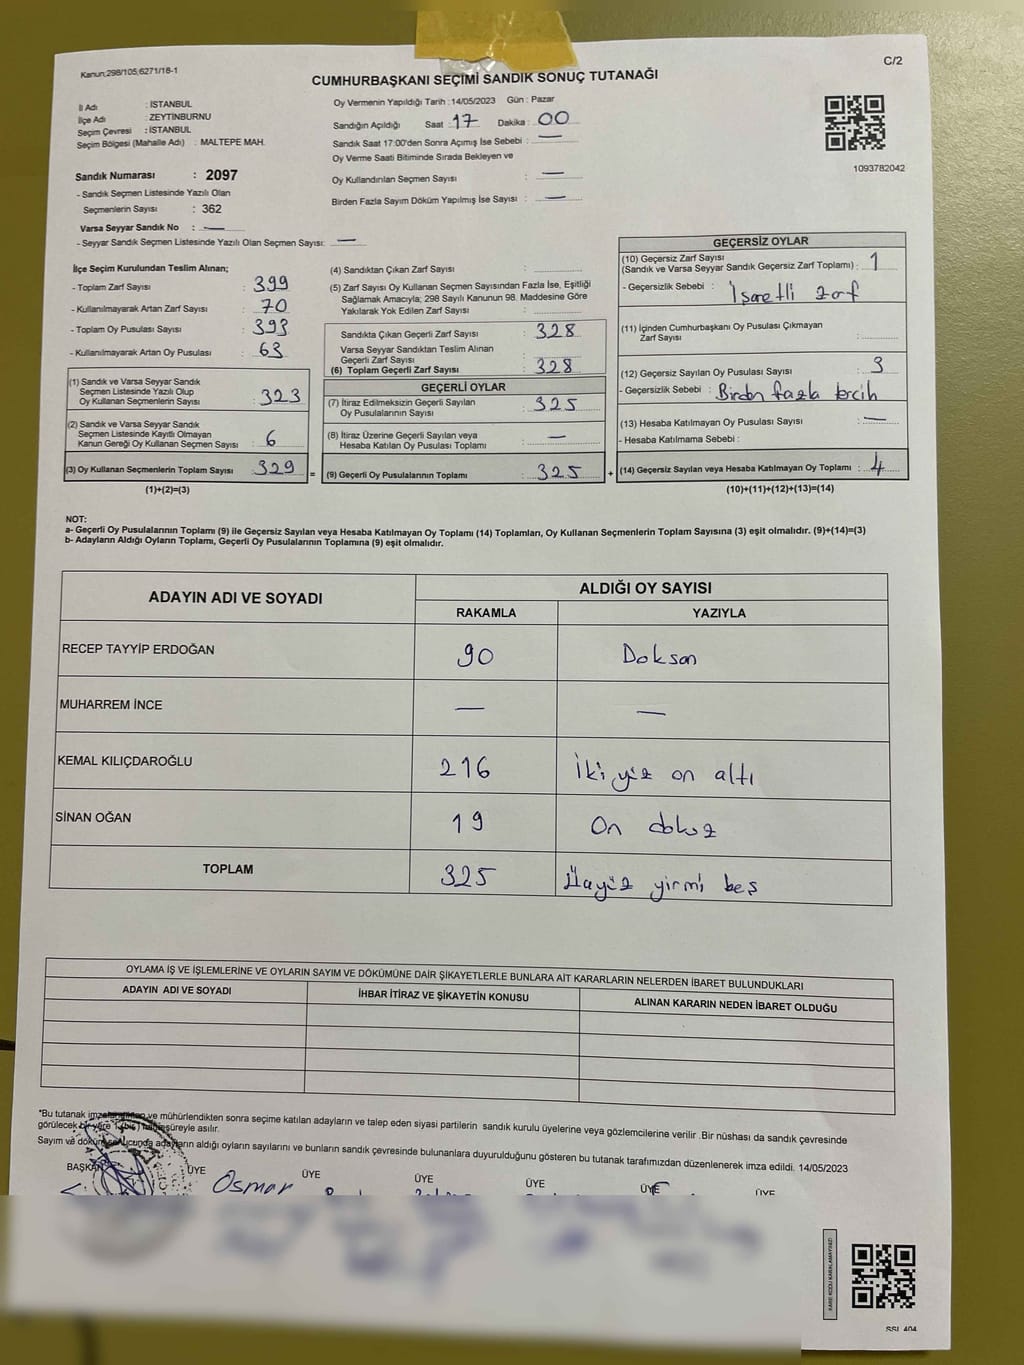 Kanun;298/105,6271/18-1
C/2
CUMHURBAŞKANI SEÇİMİ SANDIK SONUÇ TUTANAĞI
İl Adı : İSTANBUL
İlçe Adı : ZEYTİNBURNU
Seçim Çevresi : İSTANBUL
Seçim Bölgesi (Mahalle Adı) : MALTEPE MAH.
Oy Vermenin Yapıldığı Tarih : 14/05/2023 Gün : Pazar
Sandığın Açıldığı Saat : 17 Dakika : 00
Sandık Saat 17:00'den Sonra Açımış İse Sebebi : —
Oy Verme Saati Bitiminde Sırada Bekleyen ve
Oy Kullandırılan Seçmen Sayısı : —
Birden Fazla Sayım Döküm Yapılmış İse Sayısı : —
1093782042
Sandık Numarası : 2097
- Sandık Seçmen Listesinde Yazılı Olan
Seçmenlerin Sayısı : 362
Varsa Seyyar Sandık No : —
- Seyyar Sandık Seçmen Listesinde Yazılı Olan Seçmen Sayısı: —
İlçe Seçim Kurulundan Teslim Alınan;
- Toplam Zarf Sayısı : 399
- Kullanılmayarak Artan Zarf Sayısı : 70
- Toplam Oy Pusulası Sayısı : 393
- Kullanılmayarak Artan Oy Pusulası : 63
(1) Sandık ve Varsa Seyyar Sandık
Seçmen Listesinde Yazılı Olup
Oy Kullanan Seçmenlerin Sayısı : 323
(2) Sandık ve Varsa Seyyar Sandık
Seçmen Listesinde Kayıtlı Olmayan
Kanun Gereği Oy Kullanan Seçmen Sayısı : 6
(3) Oy Kullanan Seçmenlerin Toplam Sayısı : 329 =
(1)+(2)=(3)
(4) Sandıktan Çıkan Zarf Sayısı :
(5) Zarf Sayısı Oy Kullanan Seçmen Sayısından Fazla İse, Eşitliği
Sağlamak Amacıyla; 298 Sayılı Kanunun 98. Maddesine Göre
Yakılarak Yok Edilen Zarf Sayısı :
Sandıkta Çıkan Geçerli Zarf Sayısı : 328
Varsa Seyyar Sandıktan Teslim Alınan
Geçerli Zarf Sayısı :
(6) Toplam Geçerli Zarf Sayısı : 328
GEÇERLİ OYLAR
(7) İtiraz Edilmeksizin Geçerli Sayılan
Oy Pusulalarının Sayısı : 325
(8) İtiraz Üzerine Geçerli Sayılan veya
Hesaba Katılan Oy Pusulası Toplamı : —
(9) Geçerli Oy Pusulalarının Toplamı : 325 +
GEÇERSİZ OYLAR
(10) Geçersiz Zarf Sayısı
(Sandık ve Varsa Seyyar Sandık Geçersiz Zarf Toplamı) : 1
- Geçersizlik Sebebi : İşaretli zarf
(11) İçinden Cumhurbaşkanı Oy Pusulası Çıkmayan
Zarf Sayısı :
(12) Geçersiz Sayılan Oy Pusulası Sayısı : 3
- Geçersizlik Sebebi : Birden fazla tercih
(13) Hesaba Katılmayan Oy Pusulası Sayısı : —
- Hesaba Katılmama Sebebi :
(14) Geçersiz Sayılan veya Hesaba Katılmayan Oy Toplamı : 4
(10)+(11)+(12)+(13)=(14)
NOT:
a- Geçerli Oy Pusulalarının Toplamı (9) ile Geçersiz Sayılan veya Hesaba Katılmayan Oy Toplamı (14) Toplamları, Oy Kullanan Seçmenlerin Toplam Sayısına (3) eşit olmalıdır. (9)+(14)=(3)
b- Adayların Aldığı Oyların Toplamı, Geçerli Oy Pusulalarının Toplamına (9) eşit olmalıdır.
ADAYIN ADI VE SOYADI
ALDIĞI OY SAYISI
RAKAMLA YAZIYLA
RECEP TAYYİP ERDOĞAN 90 Doksan
MUHARREM İNCE — —
KEMAL KILIÇDAROĞLU 216 İki yüz on altı
SİNAN OĞAN 19 On dokuz
TOPLAM 325 Üçyüz yirmi beş
OYLAMA İŞ VE İŞLEMLERİNE VE OYLARIN SAYIM VE DÖKÜMÜNE DAİR ŞİKAYETLERLE BUNLARA AİT KARARLARIN NELERDEN İBARET BULUNDUKLARI
ADAYIN ADI VE SOYADI İHBAR İTİRAZ VE ŞİKAYETİN KONUSU ALINAN KARARIN NEDEN İBARET OLDUĞU
*Bu tutanak imzalandıktan ve mühürlendikten sonra seçime katılan adayların ve talep eden siyasi partilerin sandık kurulu üyelerine veya gözlemcilerine verilir .Bir nüshası da sandık çevresinde
görülecek bir yere 1 (bir) hafta süreyle asılır.
Sayım ve döküm sonucunda adayların aldığı oyların sayılarını ve bunların sandık çevresinde bulunanlara duyurulduğunu gösteren bu tutanak tarafımızdan düzenlenerek imza edildi. 14/05/2023
BAŞKAN ÜYE ÜYE ÜYE ÜYE ÜYE ÜYE
Osman
KARE KODU KARALAMAYINIZ!